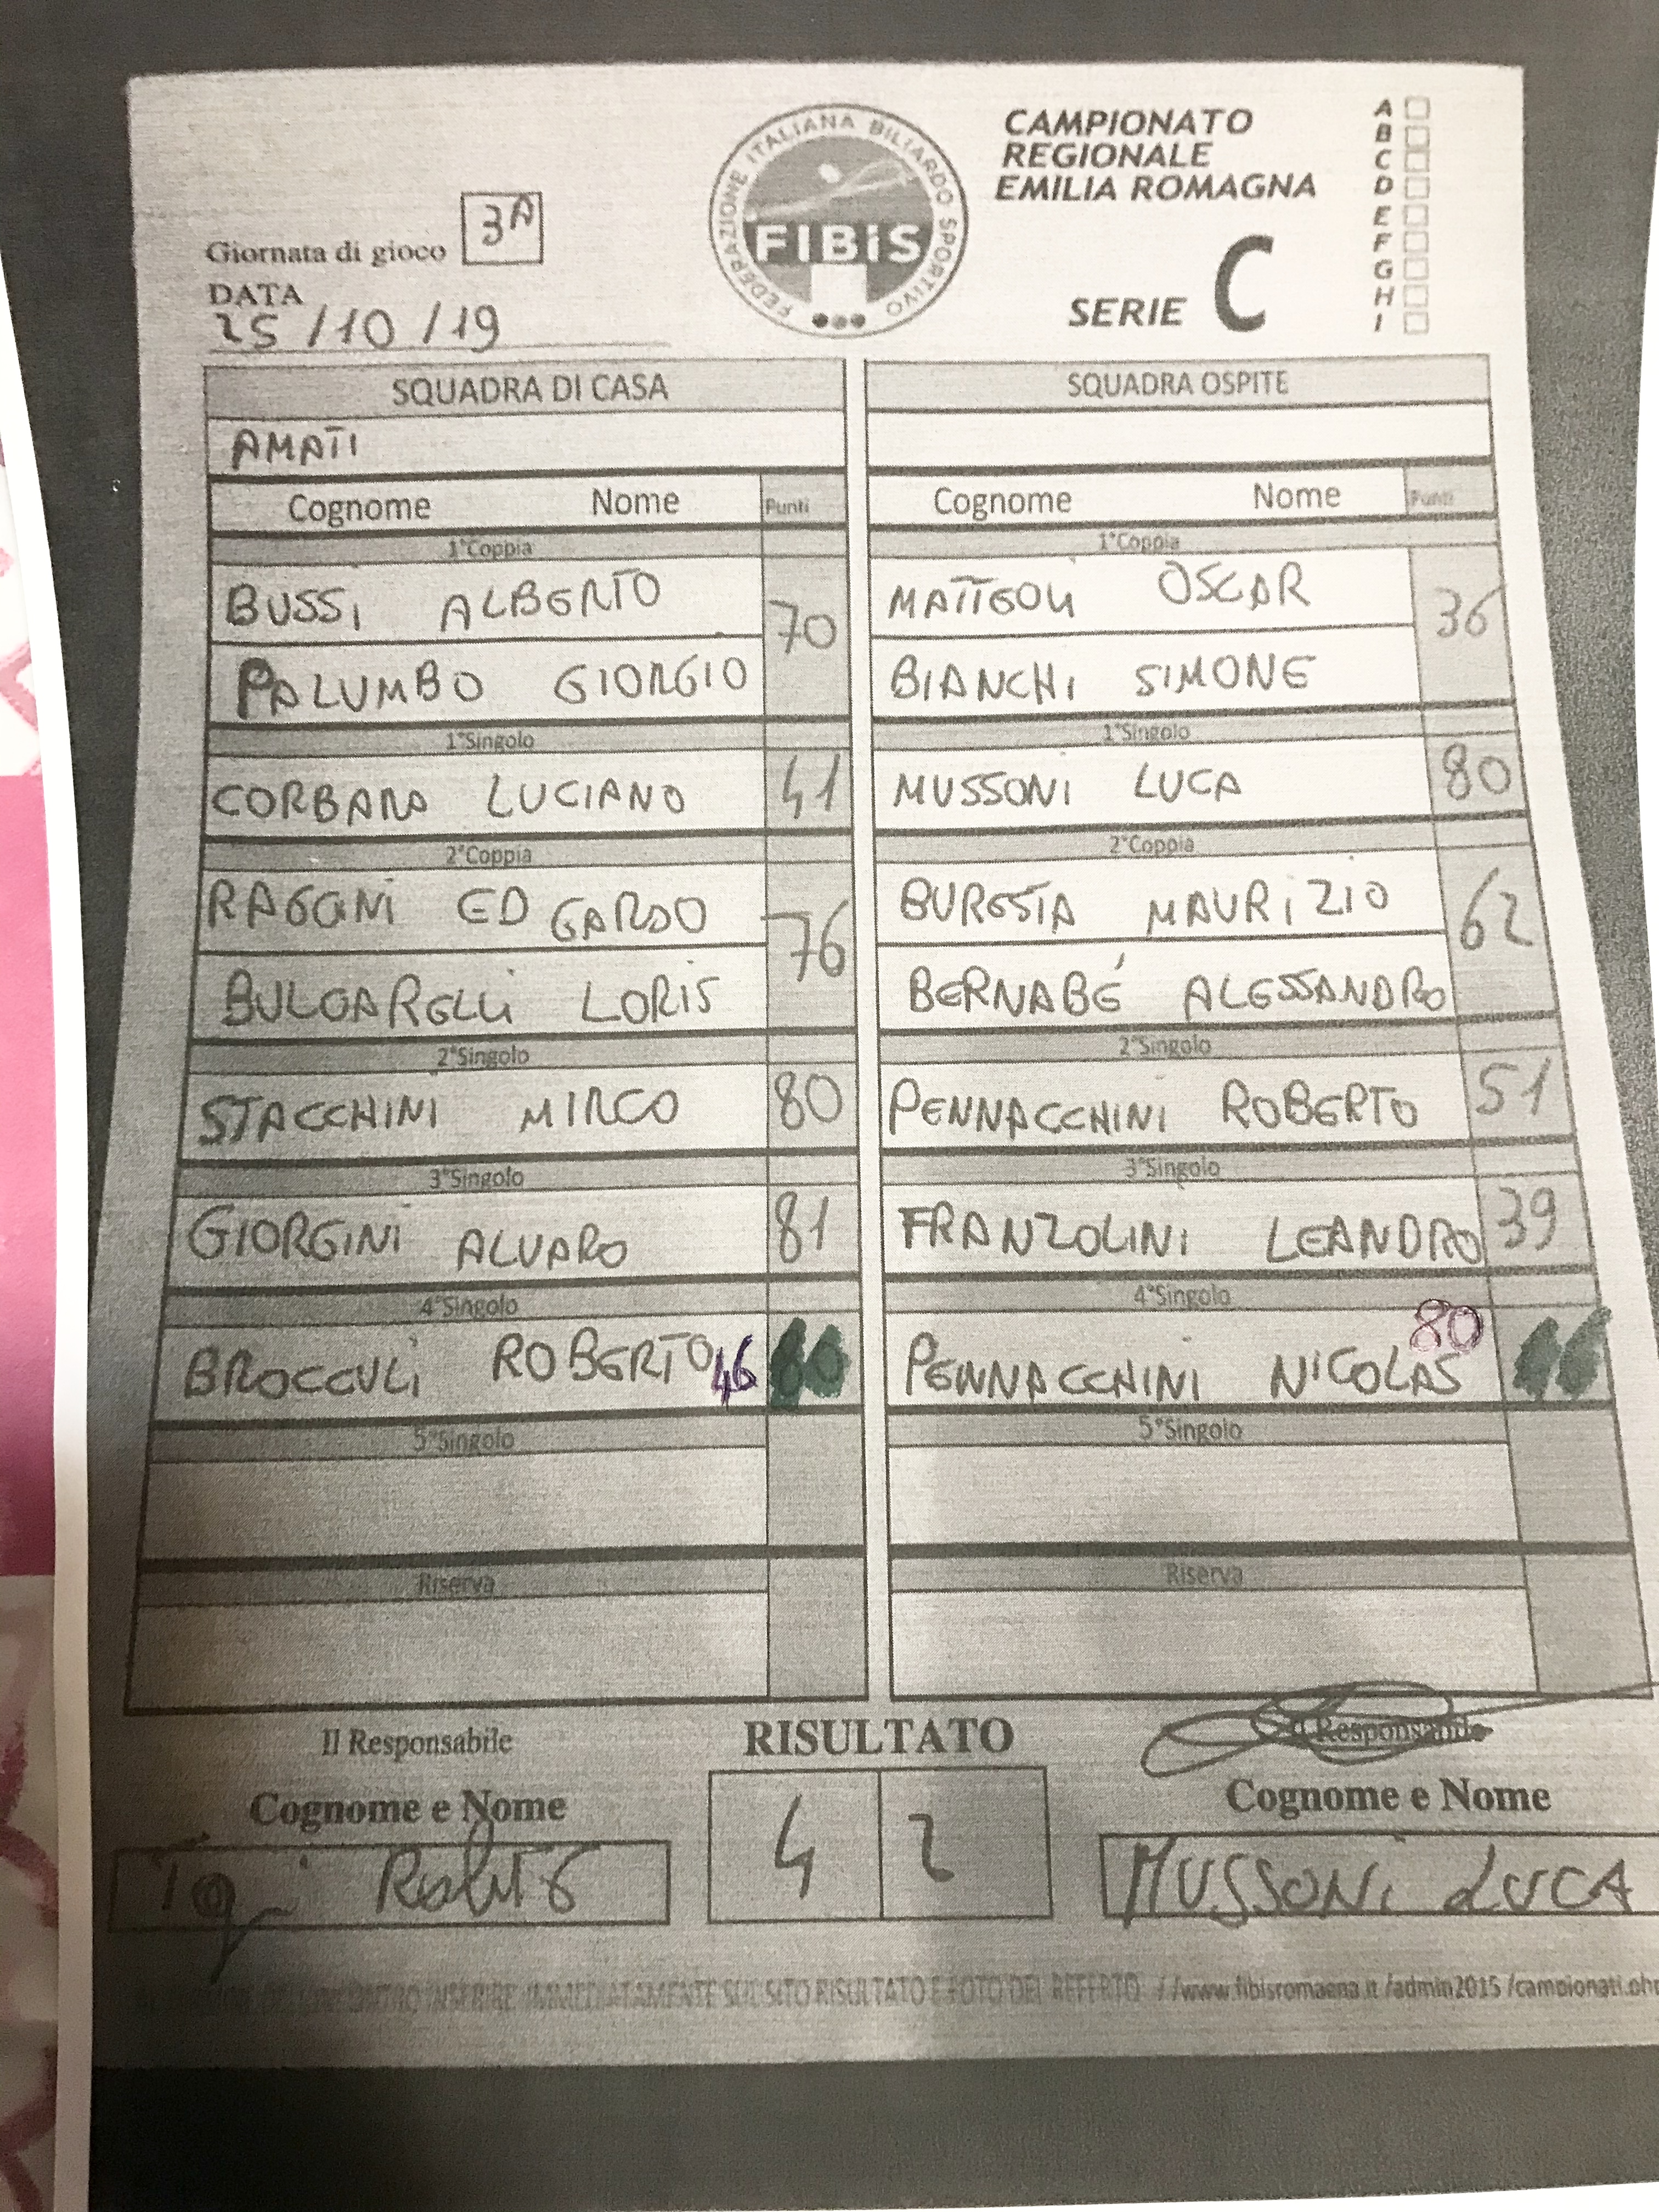 CAMPIONATO
REGIONALE
EMILIA ROMAGNA
SERIE C
A
B
C
D
E
F
G
H
I
FEDERAZIONE ITALIANA BILIARDO SPORTIVO
FIBiS
Giornata di gioco 3A
DATA
25/10/19
SQUADRA DI CASA
AMATI
Cognome Nome Punti
1°Coppia
BUSSI ALBERTO
70
PALUMBO GIORGIO
1°Singolo
CORBARA LUCIANO 41
2°Coppia
RAGONI EDGARDO
76
BULGARELLI LORIS
2°Singolo
STACCHINI MIRCO 80
3°Singolo
GIORGINI ALVARO 81
4°Singolo
BROCCULI ROBERTO 46
5°Singolo
Riserva
SQUADRA OSPITE
Cognome Nome Punti
1°Coppia
MATTEOLI OSCAR
36
BIANCHI SIMONE
1°Singolo
MUSSONI LUCA 80
2°Coppia
BURESTA MAURIZIO
62
BERNABÉ ALESSANDRO
2°Singolo
PENNACCHINI ROBERTO 51
3°Singolo
FRANZOLINI LEANDRO 39
4°Singolo
PENNACCHINI NICOLAS 80
5°Singolo
Riserva
Il Responsabile
Cognome e Nome
RISULTATO
4 2
Il Responsabile
Cognome e Nome
MUSSONI LUCA
INSERIRE IMMEDIATAMENTE SUL SITO RISULTATO E FOTO DEL REFERTO //www.fibisromagna.it /admin2015 /campionati.php